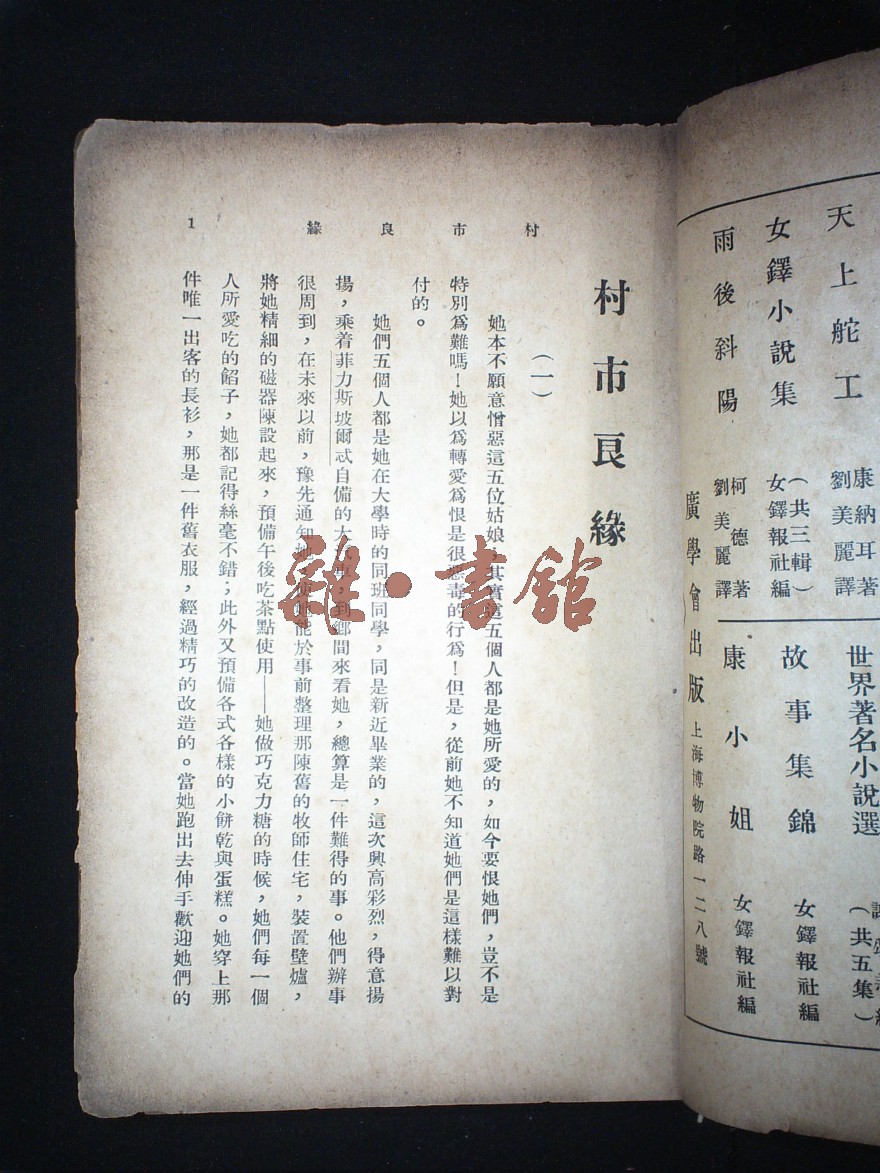 天上舵工
康納耳著
劉美麗譯
女鐸小說集
（共三輯）
女鐸報社編
雨後斜陽
柯德著
劉美麗譯
世界著名小說選
（共五集）
故事集錦
女鐸報社編
康小姐
女鐸報社編
廣學會出版 上海博物院路一二八號
村市良緣
1
村市良緣
（一）
她本不願意憎惡這五位姑娘，其實這五個人都是她所愛的，如今要恨她們，豈不是
特別爲難嗎！她以爲轉愛爲恨是很惡毒的行爲！但是，從前她不知道她們是這樣難以對
付的。
她們五個人都是她在大學時的同班同學，同是新近畢業的，這次興高彩烈，得意揚
揚，乘着菲力斯坡爾忒自備的大車，到鄉間來看她，總算是一件難得的事。他們辦事
很周到，在未來以前，豫先通知她，使她能於事前整理那陳舊的牧師住宅，裝置壁爐，
將她精細的磁器陳設起來，預備午後吃茶點使用——她做巧克力糖的時候，她們每一個
人所愛吃的餡子，她都記得絲毫不錯；此外又預備各式各樣的小餅乾與蛋糕。她穿上那
件唯一出客的長衫，那是一件舊衣服，經過精巧的改造的。當她跑出去伸手歡迎她們的
雜·書館